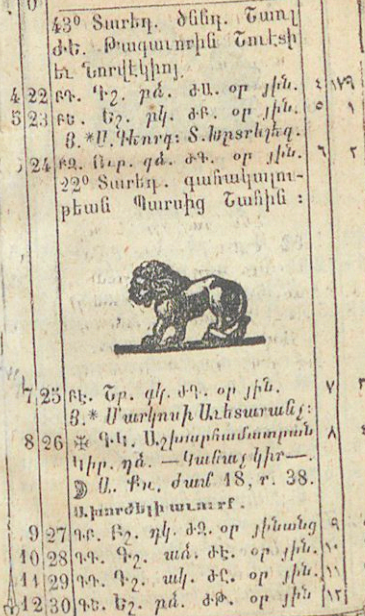 43⁰ Տարեդ. ծննդ. Շառլ
ԺԵ. Թագաւորին Շուէտի
եւ Նորվէկիոյ
4 22 Գշ. րձ. ԺԱ. օր յին. ٤
5 23 ԲԵ. Եշ. րկ. ԺԲ. օր յին. ٥ ١
Յ.*Ս.Գէորգ:
24 ԲԶ. Ուր. գձ. ԺԳ. օր յին. ٦ ٢
22⁰ Տարեդ. գահակալու-
թեան Պարսից Շահին :
7 25 ԲԷ. Շր. գկ. ԺԴ. օր յին. ٧
Յ.* Մարկոսի Աւետարանչ:
8 26 ✠ Գկ. Աշխարհամատրան ٨
կիր. դձ. —Կանաչ կիր—.
☽ Ա. Քռ. ժամ 18, ր. 38.
Ախորժելի աւուրք.
9 27 ԲՇ. դկ. ԺԶ. օր յինանց ٩
10 28 Գշ. ԺԷ. օր յին. ١٠
11 29 Դշ. ակ. ԺԸ. օր յին. ١١
12 30 Եշ. բձ. ԺԹ. օր յին. ١٢